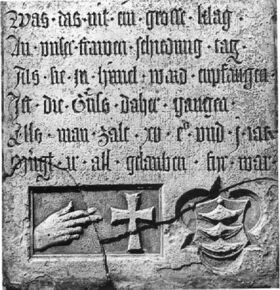 Was · das · nit · ein · grosse · klag ·
An · unser · frawen · schiedung · tag ·
Als · sie · in · himel · ward · enpfangen
Ist · die · Güss · daher · gangen ·
Als · man · zalt · xv · c · vnd · j · iar
· ir · all · gelauben · fyr · war